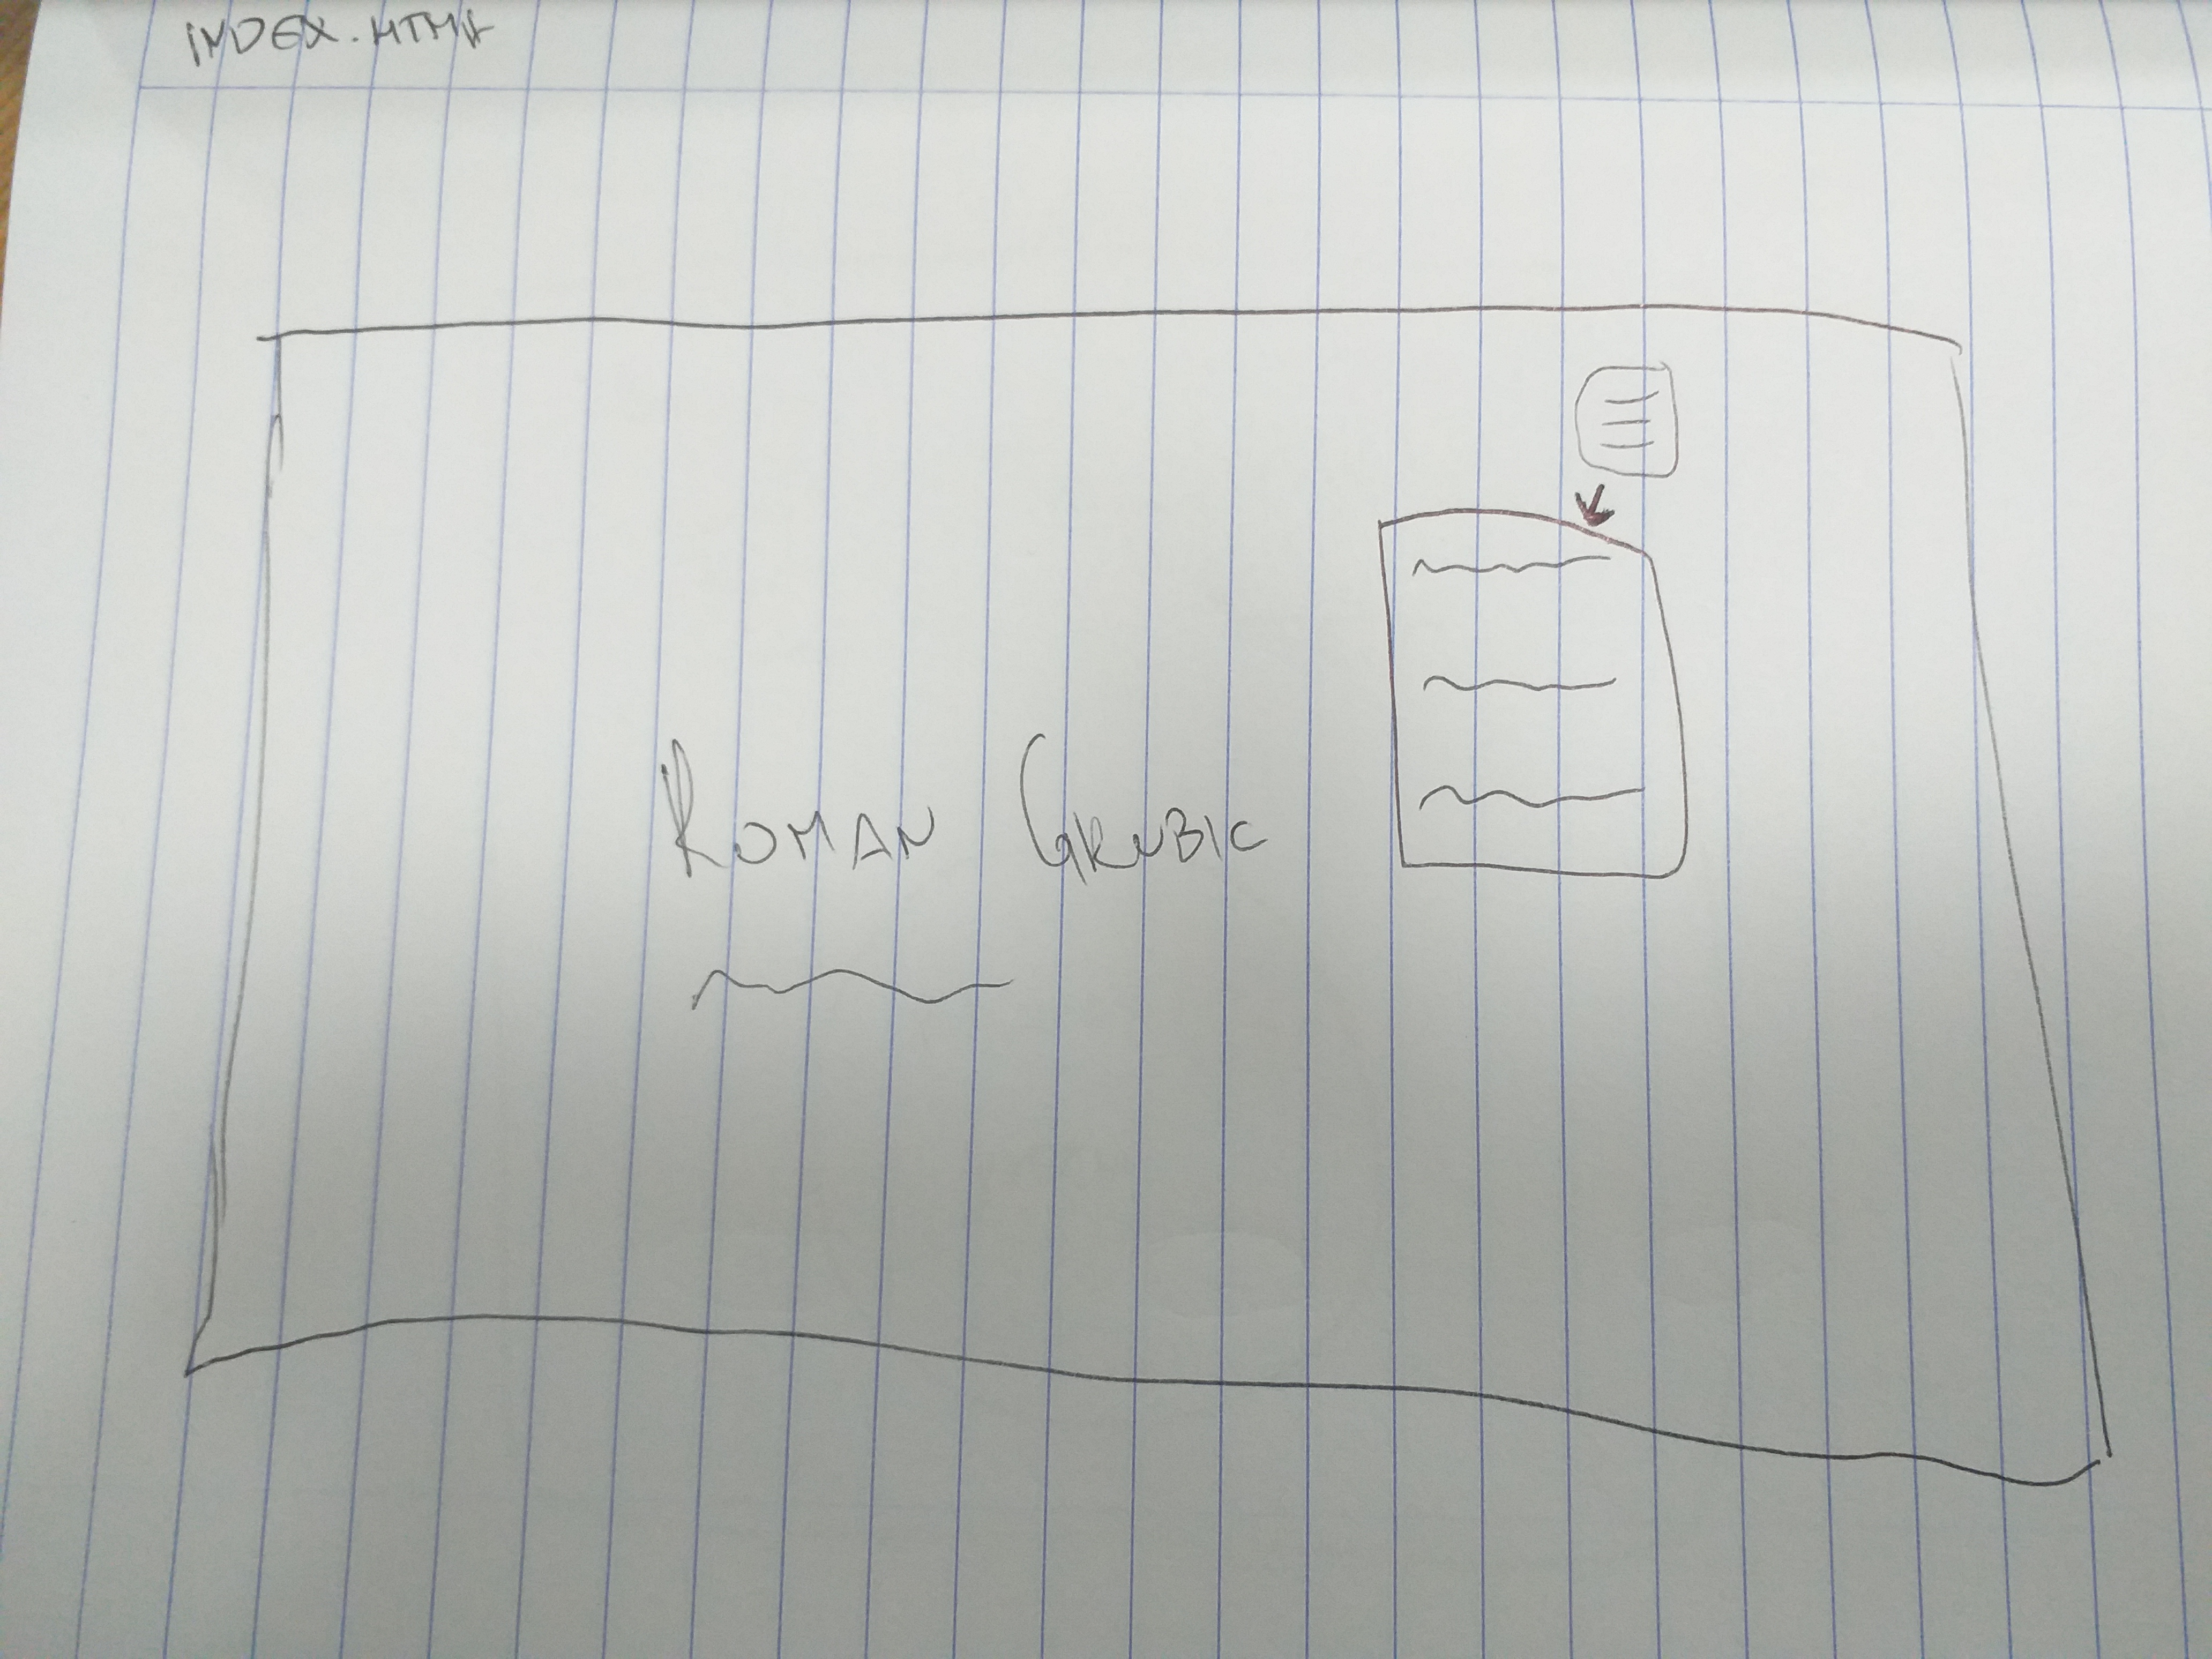 INDEX.HTML
ROMAN GRUBIC